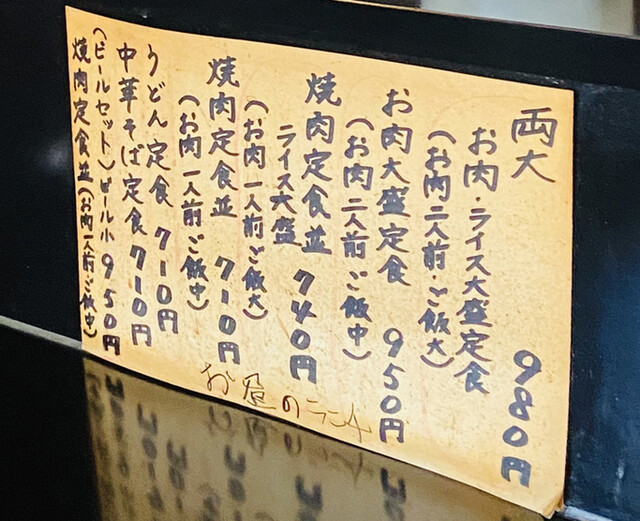 両大
お肉・ライス大盛定食 980円
(お肉二人前・ご飯大)
お肉大盛定食 950円
(お肉二人前・ご飯中)
焼肉定食並 740円
ライス大盛
(お肉一人前・ご飯大)
焼肉定食並 710円
(お肉一人前・ご飯中)
うどん定食 710円
中華そば定食 710円
(ビールセット)ビール小 950円
焼肉定食並(お肉一人前・ご飯中)
お昼のランチ